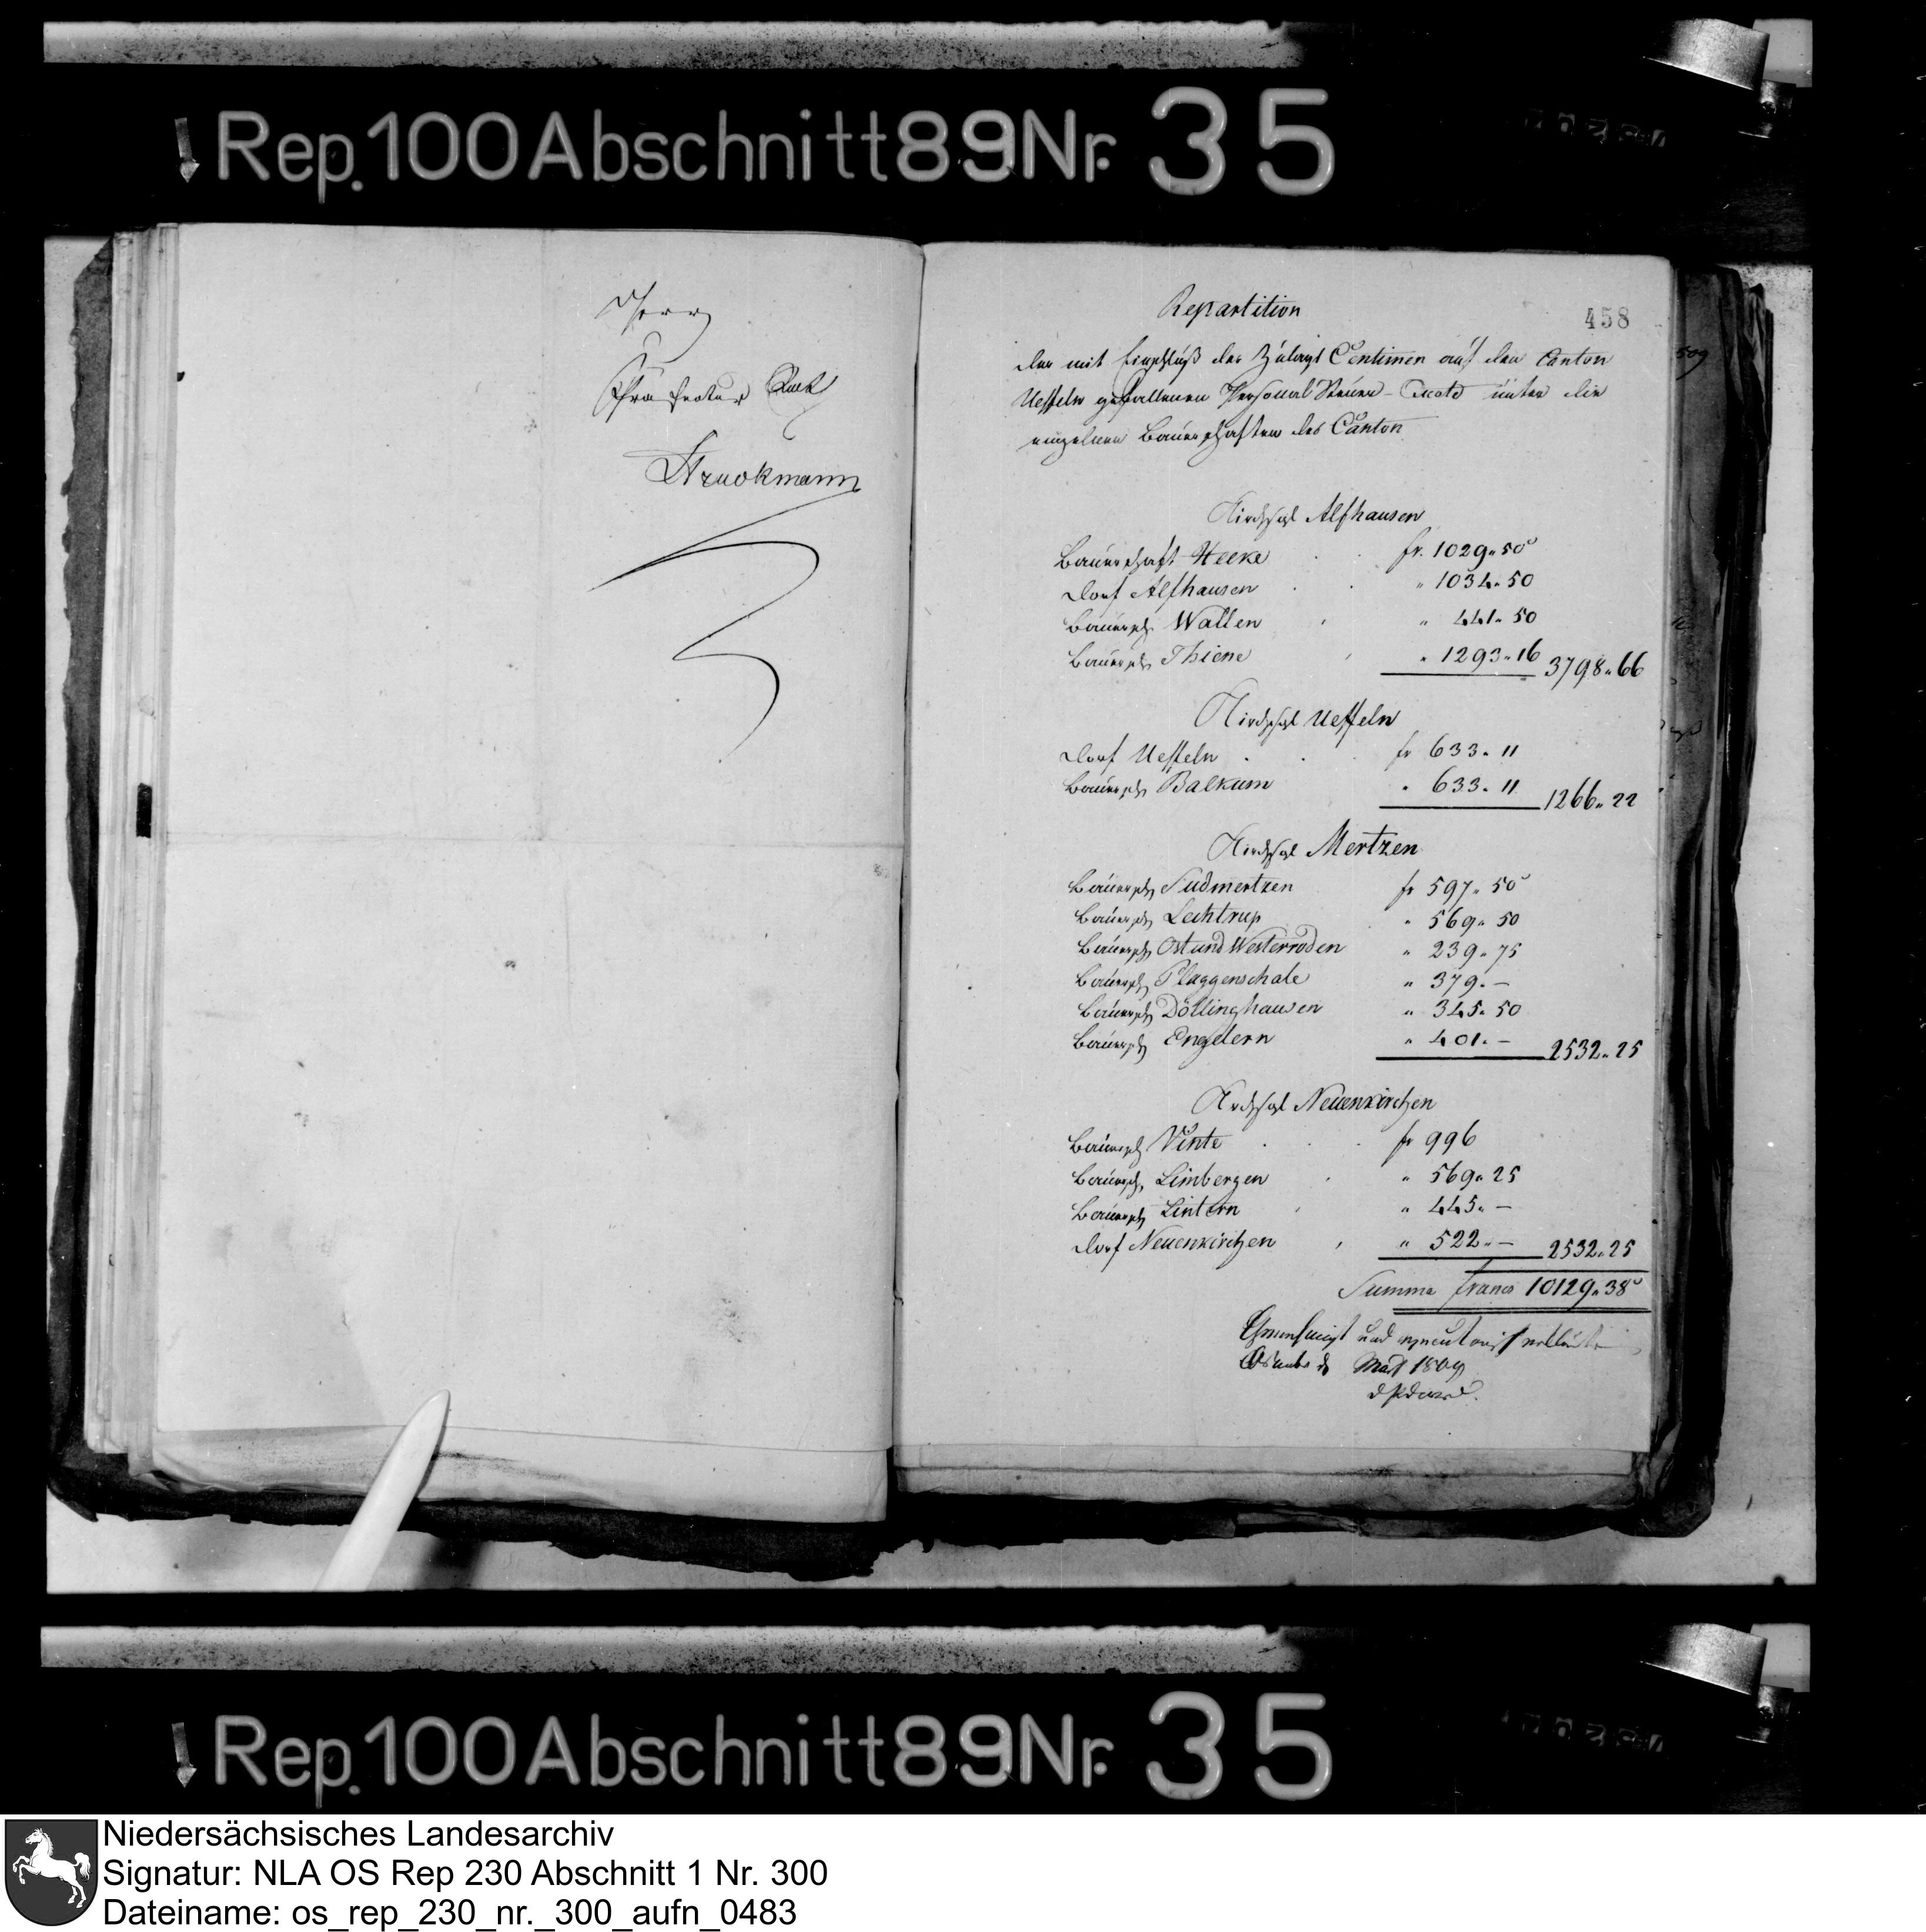 Rep. 100 Abschnitt 89 Nr. 35
Herrn
Präfectur Rath
Struckmann
Repartition
458
509
der mit Einschluß der Zulags Centimen auf den Canton
Ueffeln gefallenen Personal Steuer-Quote unter die
einzelnen Bauerschaften des Canton
Kirchspl Alfhausen
Bauerschaft Heeke fr. 1029. 50
Dorf Alfhausen " 1034. 50
Bauersch Wallen " 441. 50
Bauersch Thiene " 1293. 16 3798. 66
Kirchspl Ueffeln
Dorf Ueffeln fr 633. 11
Bauersch Balkum " 633. 11 1266. 22
Kirchspl Mertzen
Bauersch Sudmertzen fr 597. 50
Bauersch Lechtrup " 569. 50
Bauersch Ost und Westerroden " 239. 75
Bauersch Plaggenschale " 379. –
Bauersch Döllinghausen " 345. 50
Bauersch Engelern " 401. – 2532. 25
Kirchspl Neuenkirchen
Bauersch Vinte fr 996
Bauersch Limbergen " 569. 25
Bauersch Lintern " 445. –
Dorf Neuenkirchen " 522. – 2532. 25
Summa francs 10129. 38
Genehmigt und
März 1809
Rep. 100 Abschnitt 89 Nr. 35
Niedersächsisches Landesarchiv
Signatur: NLA OS Rep 230 Abschnitt 1 Nr. 300
Dateiname: os_rep_230_nr._300_aufn_0483